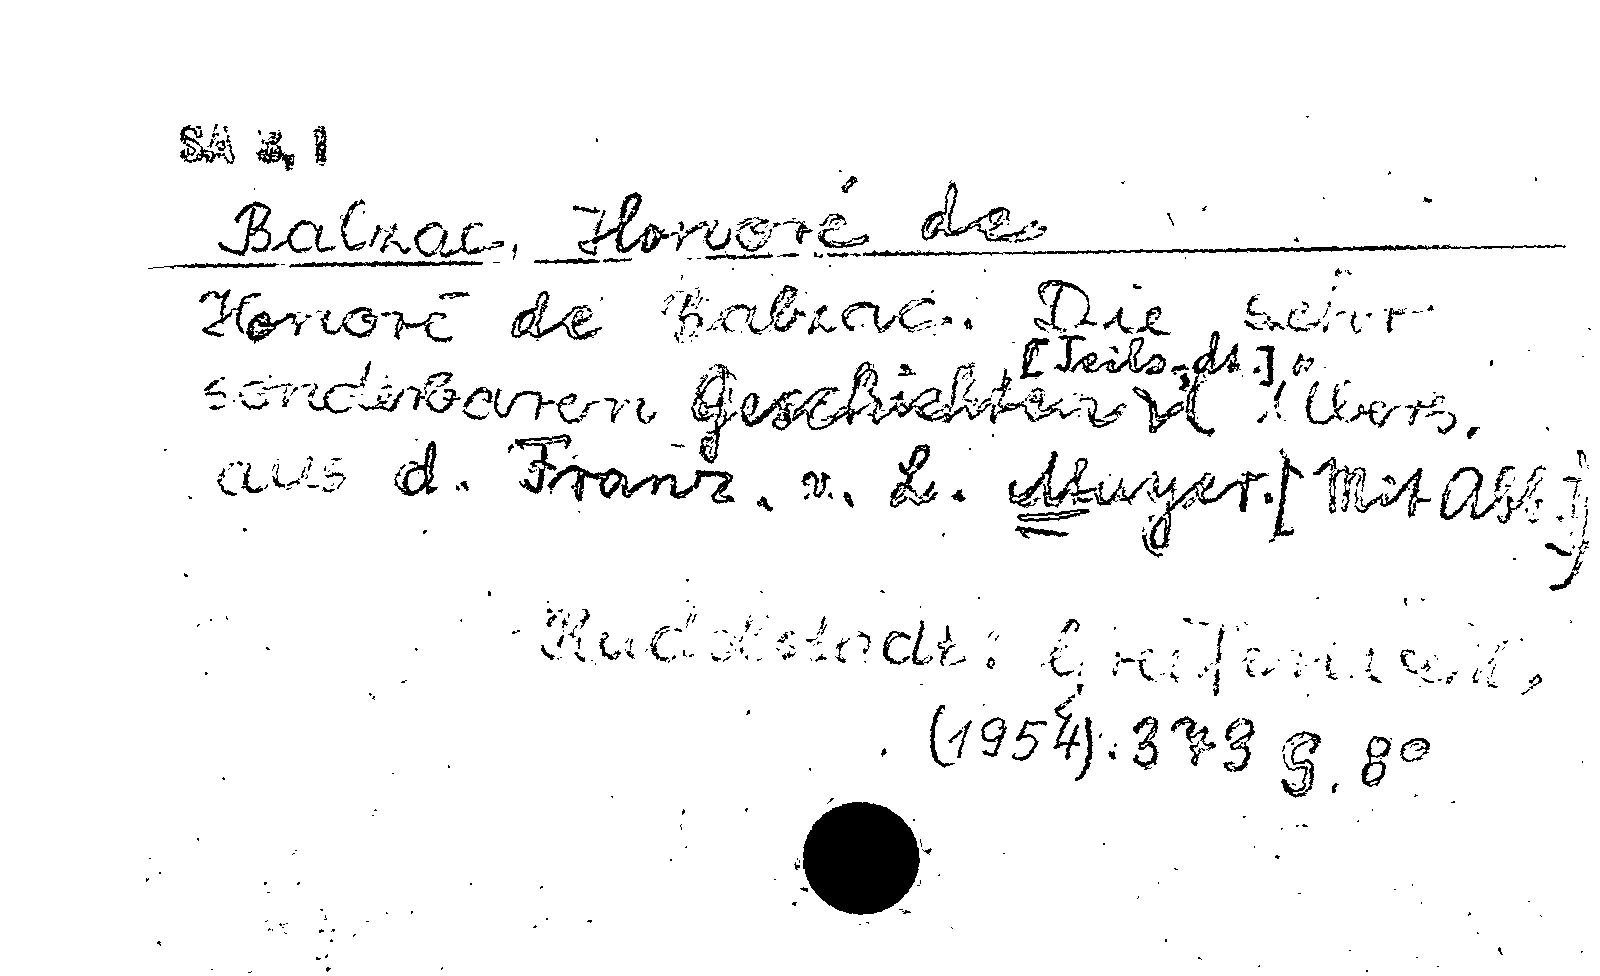 SA 3, 1
Balzac, Honoré de
Honoré de Balzac. Die sehr
[Teils. dt.]
sonderbaren Geschichten Übers.
aus d. Franz. v. L. Meyer. [Mit Abb.]
Rudolstadt: Greifenverl.,
(1954). 373 S. 8°